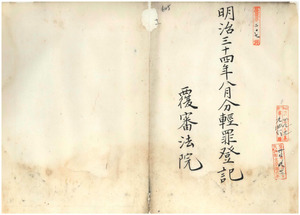 明治三十四年八月分輕罪登記
覆審法院